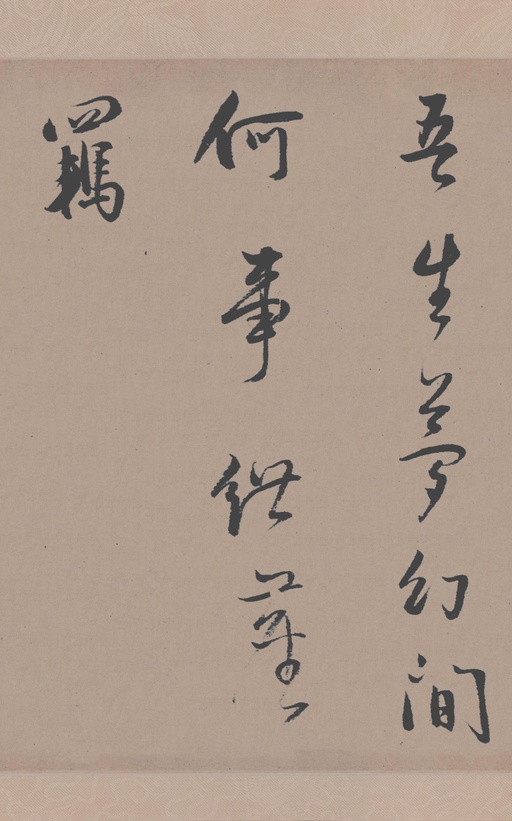 吾生夢幻間
何事紲塵
羈